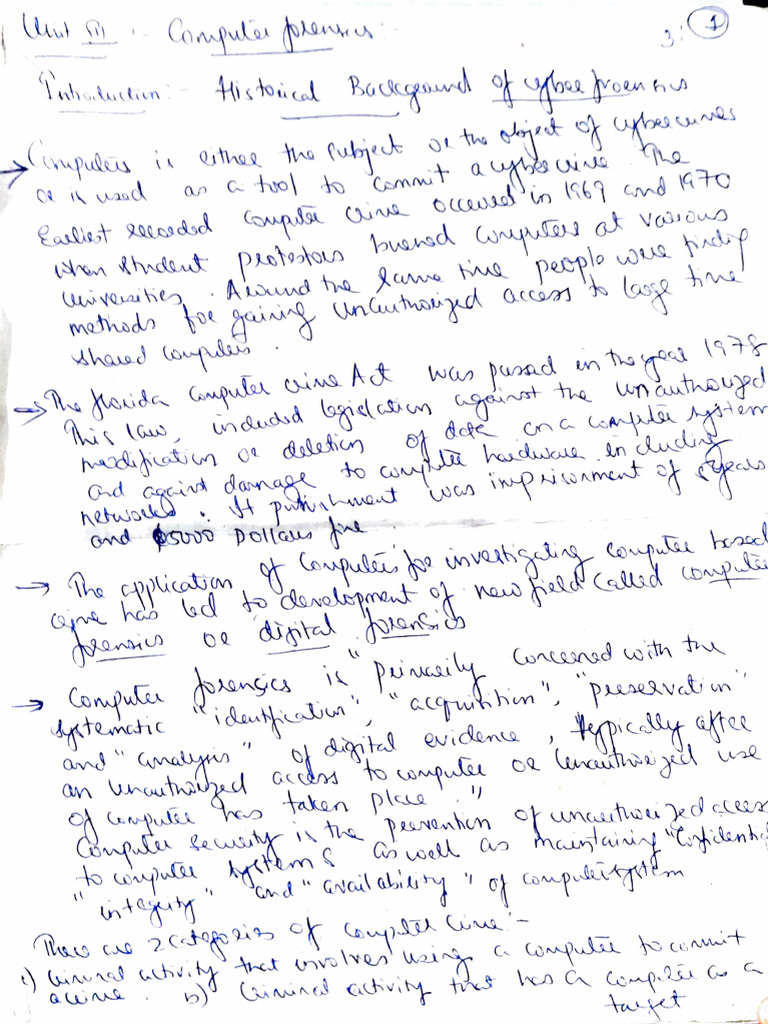 Unit III :- Computer forensics :- 3: 1
Introduction :- Historical Background of cyber froensics
→ Computers is either the subject or the object of cybercrimes
or is used as a tool to commit a cybercrime The
Earliest recorded computer crime occured in 1969 and 1970
when student protestors burned computers at various
universities. Around the same time people were finding
methods for gaining unauthorized access to large time
shared computers.
→ The florida computer crime Act was passed in the year 1978
This law, included legislation against the unauthorized
modification or deletion of data on a computer system
and against damage to computer hardware including
networks. It punishment was imprisonment of 5 years
and $5000 Dollars fine.
→ The application of computers for investigating computer based
crime has led to development of new field called computer
forensics or digital forensics
→ Computer forensics is "primarily concerned with the
systematic "identification", "acquisition", "preservation"
and "analysis" of digital evidence, typically after
an unauthorized access to computer or unauthorized use
of computer has taken place."
Computer security is the prevention of unauthorized access
to computer systems as well as maintaining "Confidenti
"integrity" and "availability" of computersystem
There are 2 categories of computer crime :-
Criminal activity that involves using a computer to commit
a crime. b) Criminal activity that has a computer as a
target